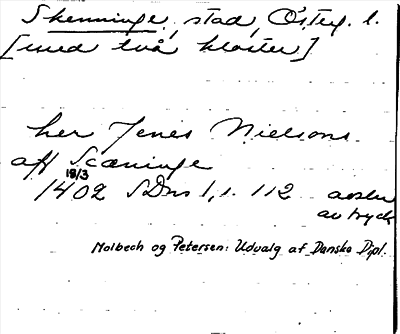 Skenninge, stad, Österg. l.
[med två kloster]
her Jenes Nielsons
aff Scæninge
19/3
1402 SDns 1, s. 112 avskr.
av tryck
Molbech og Petersen: Udvalg af Danske Dipl.